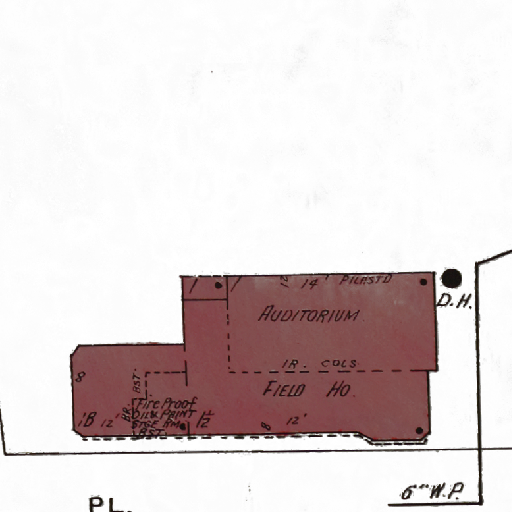 1 1 14' PILAST'D
D.H.
AUDITORIUM
IR. COLS
FIELD HO.
8
BST.
Fire Proof
OIL & PAINT
STGE RM.
BST.
1B 12' 1½ 8 12'
6" W.P.
PL.